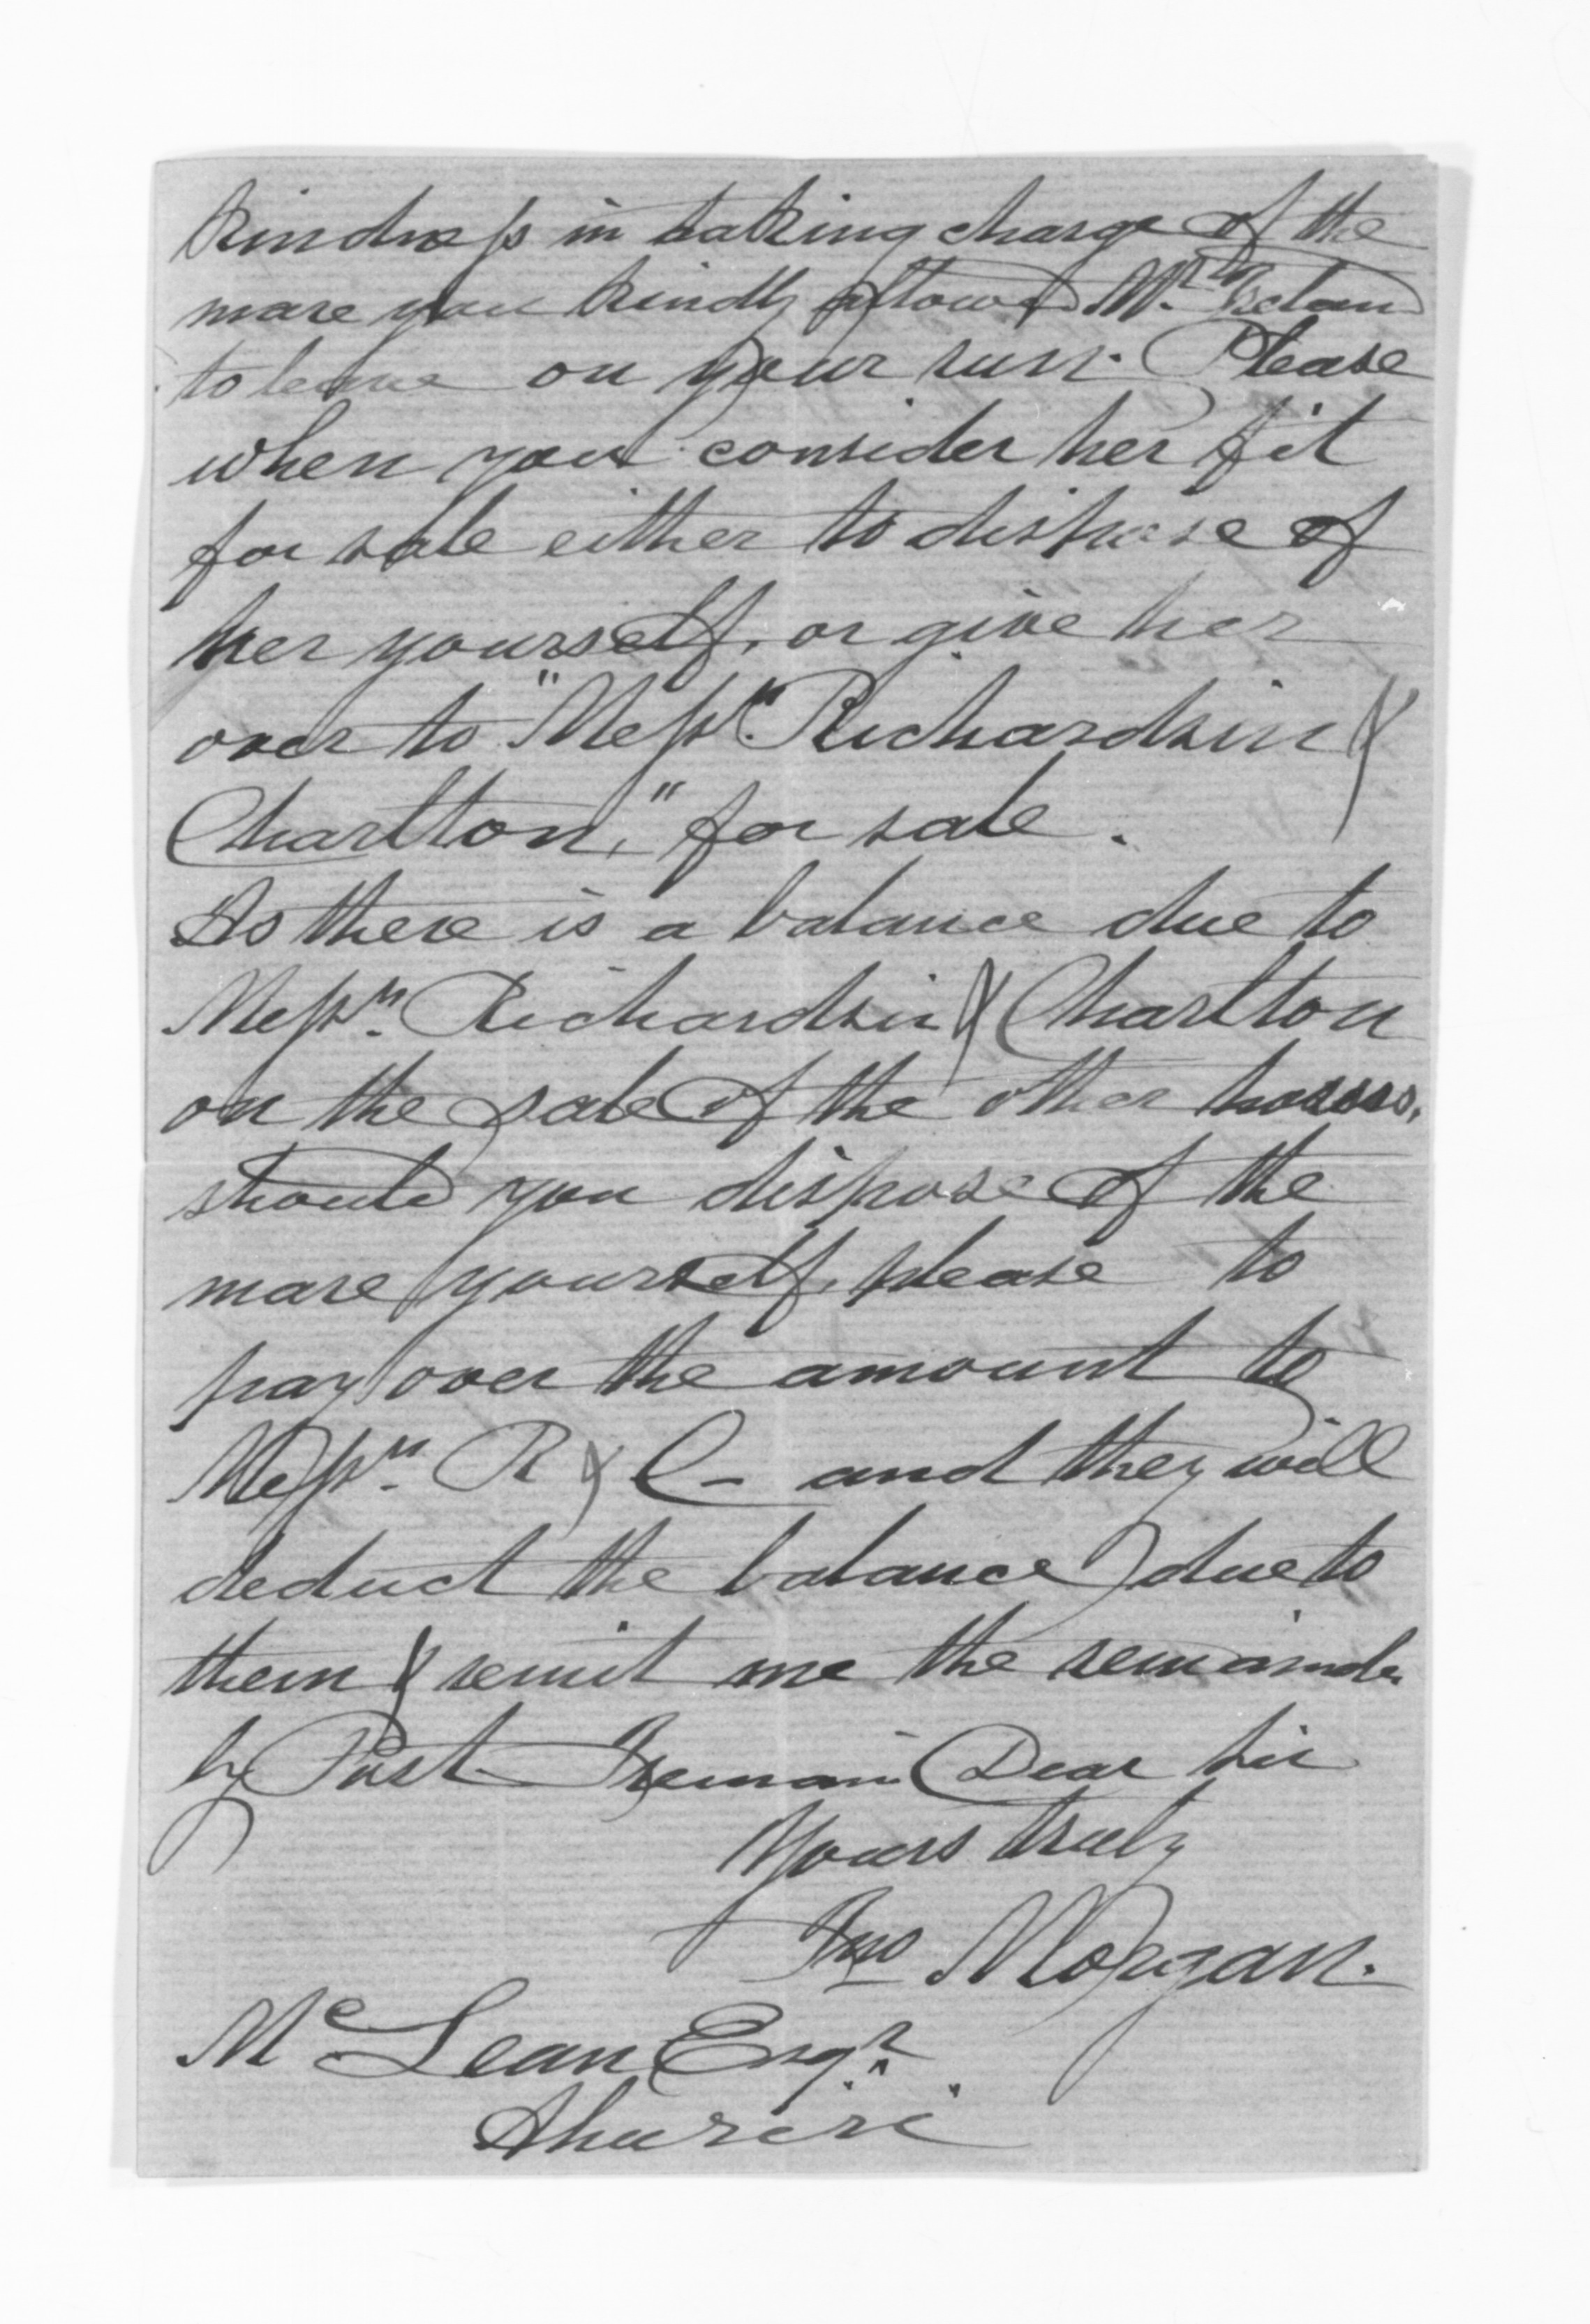 kindness in taking charge of the
mare you kindly allowed Mr
to leave on your run. Please
when you consider her fit
for sale either to dispose of
her yourself, or give her
over to "Messrs. Richardson &
Charlton," for sale.
As there is a balance due to
Messrs. Richardson & Charlton
on the sale of the other horses,
should you dispose of the
mare yourself, please to
pay over the amount to
Messrs. R & C – and they will
deduct the balance due to
them & remit me the remainder
by Post I remain Dear Sir
Yours truly
Jno Morgan.
McLean Esqr.
Ahuriri